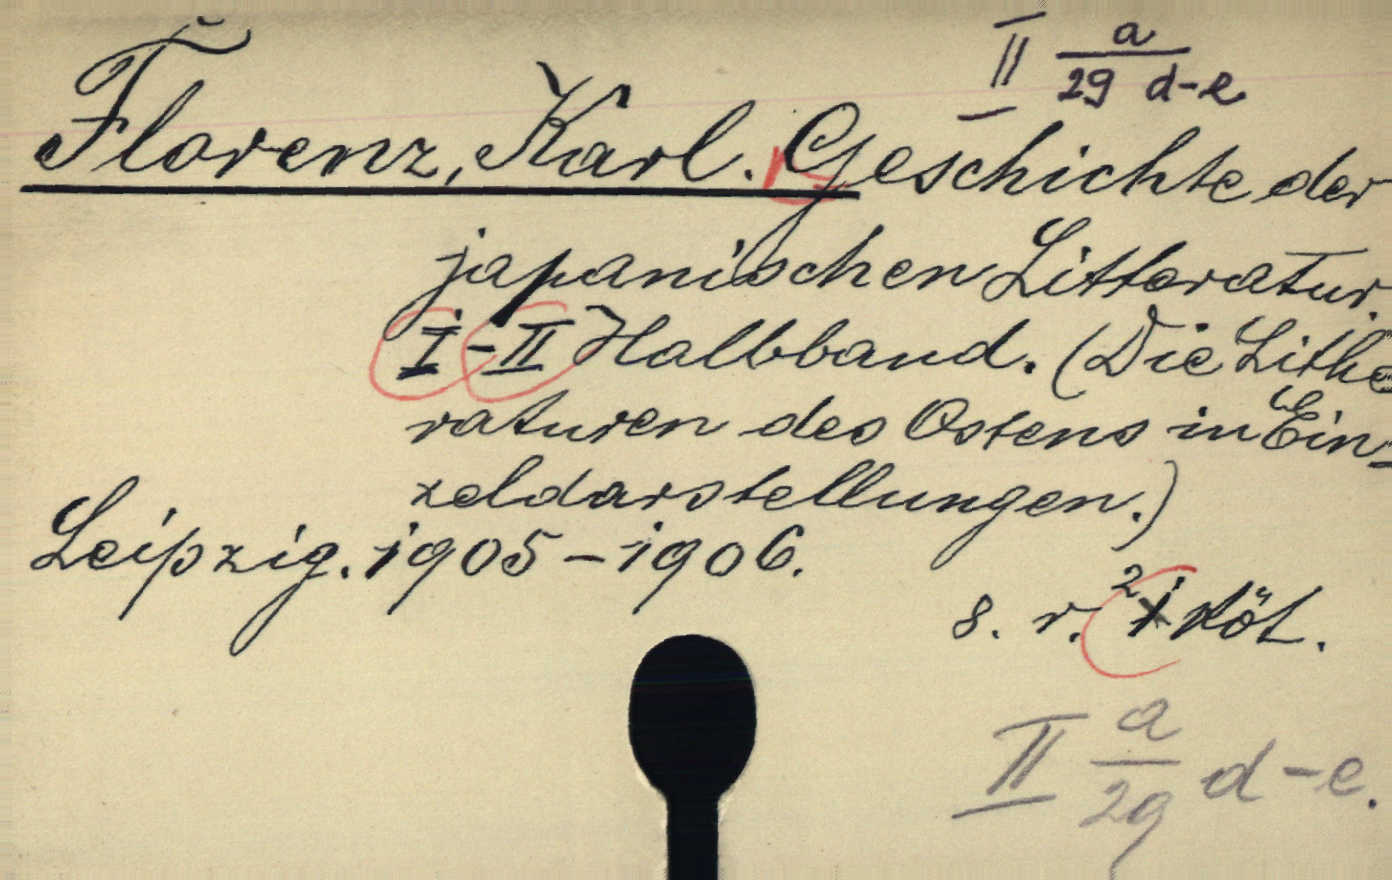 II a/29 d-e
Florenz, Karl. Geschichte der
japanischen Litteratur.
I-II Halbband. (Die Litte
raturen des Ostens in Ein-
zeldarstellungen.)
Leipzig. 1905-1906.
8. r. 2 köt.
II a/29 d-e.